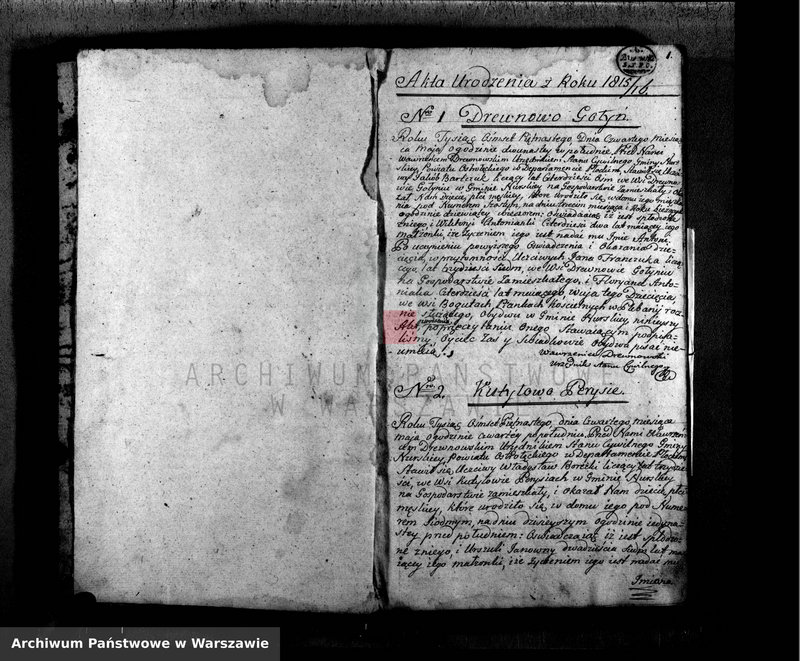 1.
Akta Urodzenia z Roku 1815/16
Nro 1 Drewnowo Gołyń.
Roku Tysiąc Ośmset Piętnastego, Dnia Czwartego miesią-
ca maja, o godzinie dwunastey w południe Przed Nami
Wawrzeńcem Drewnowskim Urzędnikiem Stanu Cywilnego Gminy Nur-
skiey Powiatu Ostrołęckiego w Departamencie Płockim, Stawił się
Jakub Bartczuk liczący lat Czterdzieści Ośm we Wsi Drewno-
wie Gołyniu w Gminie Nurskiey na Gospodarstwie Zamieszkały,
zał Nam dziecię płci męskiey, które urodziło się, w domu iego
pod Numerem na dniu trzecim miesiąca i Roku bieżącego
o godzinie dziewiątey wieczorem: Oświadczaiąc iż iest spłodzone
z niego i Wiktoryi Antoniakow Czterdzieści dwa lat maiącey, iego
małżonki, i że życzeniem iego iest nadać mu Imie Antoni.
Po uczynieniu powyższego Oświadczenia i Okazania dzie-
cięcia, w przytomności Uczciwych Jana Franczuka liczą-
cego lat trzydzieści Siedm, we Wsi Drewnowie Gołyniu
na Gospodarstwie Zamieszkałego, i Floryana Anto-
niaka Czterdzieści lat maiącego Wuia tego Dziecięcia,
we Wsi Bogutach Piankach Kościelnych w Plebany roz-
nie służącego, Obydwu w Gminie Nurskiey, ninieyszy
Akt, po przeczytaniu Onego Stawaiącym podpisa-
liśmy. Oyciec Zaś y Świadkowie Obydwa pisać nie-
umieią.
Wawrzeniec Drewnowski
Urzędnik Stanu Cywilnego
Nro 2. Kutyłowo Perysie.
Roku Tysiąc Ośmset Piętnastego, dnia Czwartego, miesiąca
maja, o godzinie Czwartey po południu, Przed Nami Wawrzeń-
cem Drewnowskim Urzędnikiem Stanu Cywilnego Gminy
Nurskiey Powiatu Ostrołęckiego w Departamencie Płockim,
Stawił się, Uczciwy Władysław Borecki liczący lat trzydzie-
ści, we Wsi Kutyłowie Perysiach w Gminie Nurskiey
na Gospodarstwie Zamieszkały, i Okazał Nam dziecię płci
męskiey, które urodziło się, w domu iego pod Nume-
rem Siodmym, na dniu dzisieyszym o godzinie iedyna-
stey przed południem: Oświadczaiąc iż iest spłodzo-
ne z niego, i Urszuli Janowny dwadzieścia siedm lat ma-
iącey iego małżonki, i że życzeniem iego iest nadać mu
Imiona
ARCHIWUM PAŃSTWOWE
W WARSZAWIE
Archiwum Państwowe w Warszawie